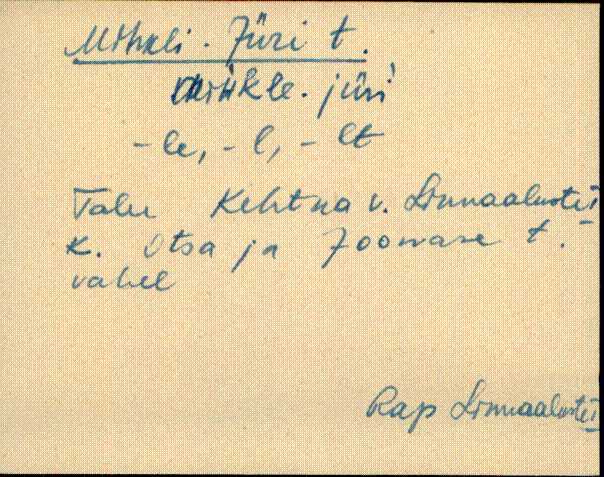 Mihkli - Jüri t.
mihkle - jüri
-le, -l, -lt
Talu Kehtna v. Linnaaluste I
k. Otsa ja Joosvase t.
vahel
Rap Linnaaluste I